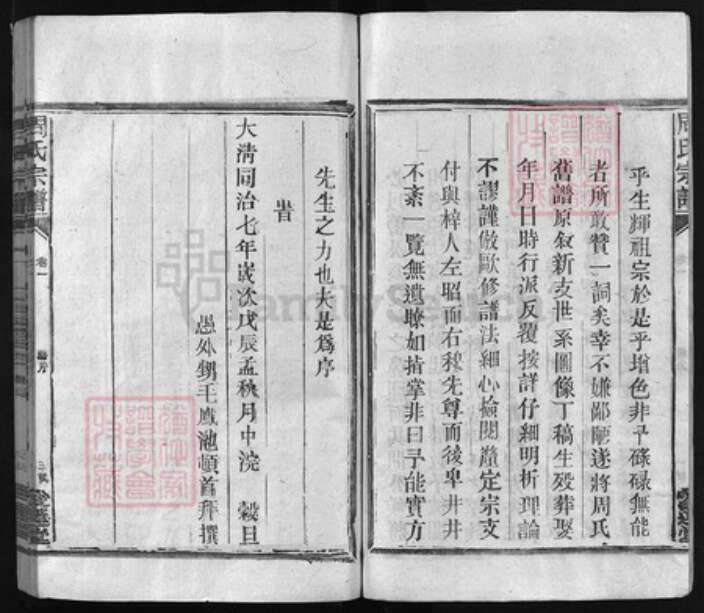 周氏宗譜
乎生輝祖宗於是乎增色非予碌碌無能
者所敢贊一詞矣幸不嫌鄙陋遂將周氏
舊譜原敘新支世系圖像丁稿生歿葬娶
年月日時行派反覆按詳仔細明析理論
不謬謹倣歐修譜法細心檢閱釐定宗支
付與梓人左昭而右穆先尊而後卑井井
不紊一覽無遺瞭如指掌非曰予能實方
先生之力也夫是為序
峕
大清同治七年歲次戊辰孟秋月中浣 穀旦
愚外甥王鳳池頓首拜撰
周氏宗譜
卷一
FamilySearch